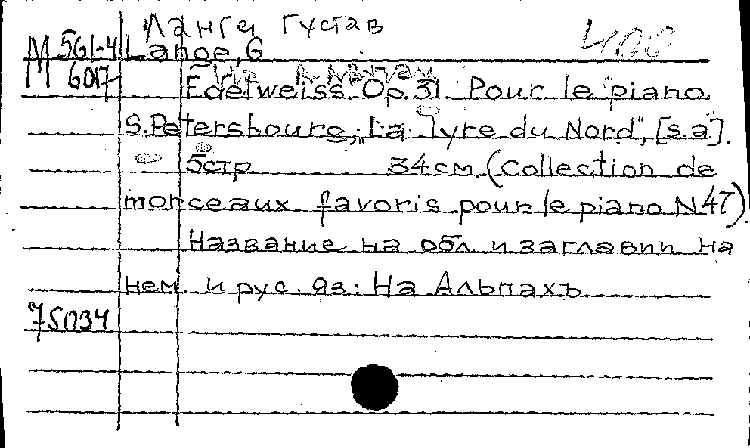 Ланге Густав
400
М 561-4 Lange, G
М 6017
Edelweiss. Op. 31. Pour le piano
S.Petersbourg, „La Lyre du Nord", [s.a].
5стр 34см (Collection de
morceaux favoris pour le piano N47)
Название на обл и заглавии на
нем. и рус. яз: На Альпахъ
75034